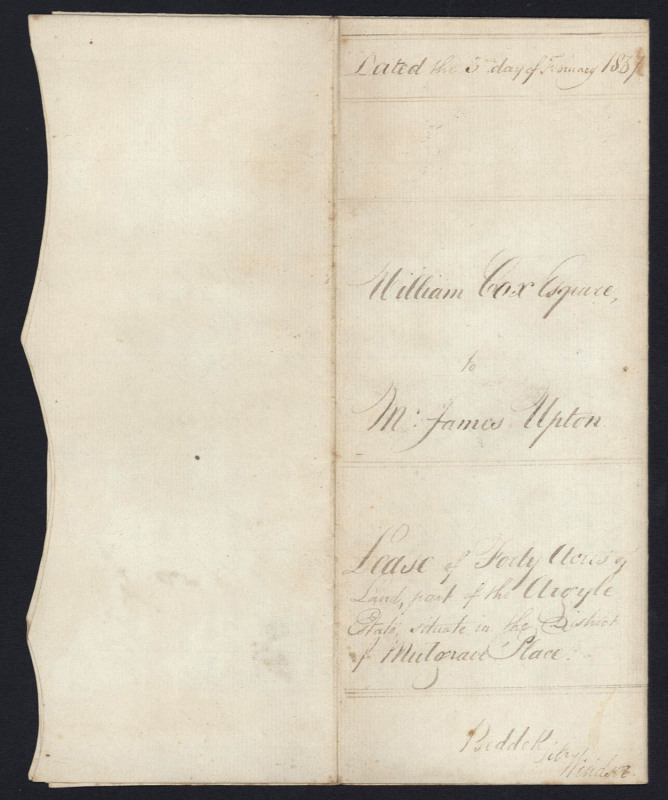 Dated the 3rd day of February 1837
William Cox Esquire,
to
Mr. James Upton
Lease of Forty Acres of
Land, part of the Argyle
Estate, situate in the District
of Mulgrave Place.
Beddek
Windsor